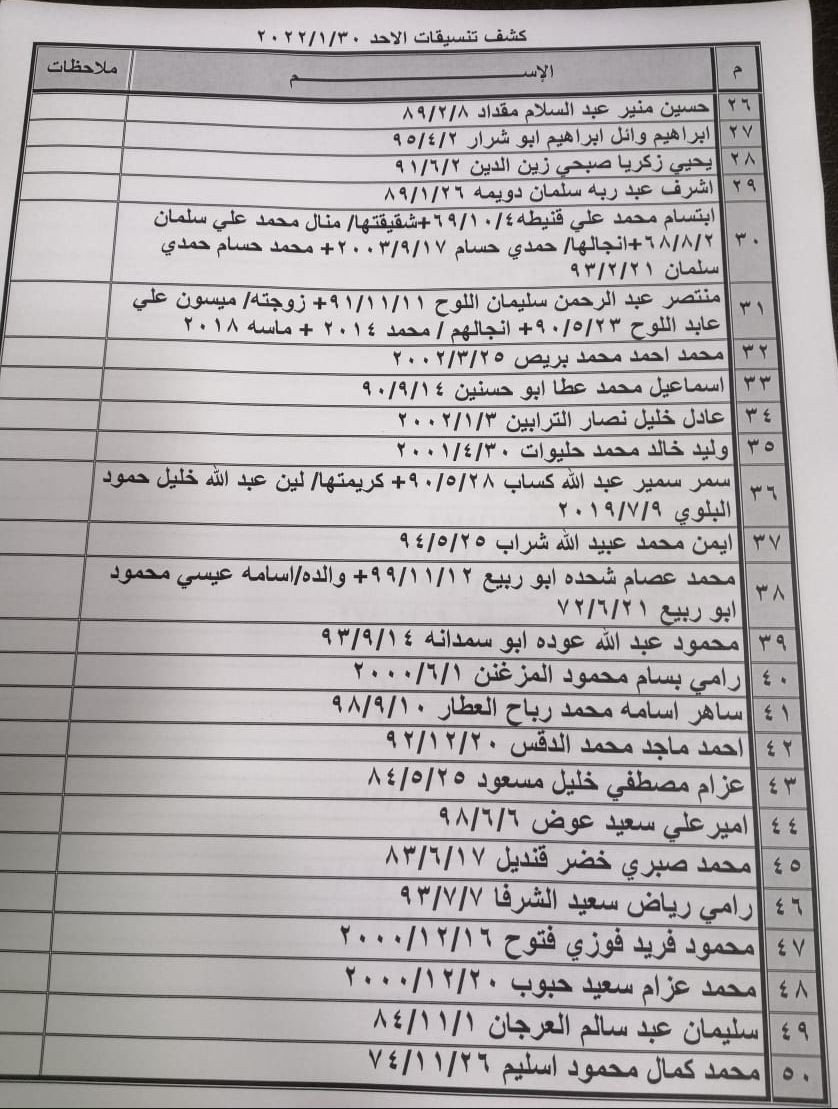 كشف تنسيقات الاحد ٢٠٢٢/١/٣٠
م الإســـــــــم ملاحظات
٢٦ حسين منير عبد السلام مقداد ٨٩/٢/٨
٢٧ ابراهيم وائل ابراهيم ابو شرار ٩٥/٤/٢
٢٨ يحيي زكريا صبحي زين الدين ٩١/٦/٢
٢٩ اشرف عبد ربه سلمان دويمه ٨٩/١/٢٦
٣٠ ابتسام محمد علي قنيطه ٦٩/١٠/٤+شقيقتها/ منال محمد علي سلمان
٦٨/٨/٢+انجالها/ حمدي حسام ٢٠٠٣/٩/١٧+ محمد حسام حمدي
سلمان ٩٣/٢/٢١
٣١ منتصر عبد الرحمن سليمان اللوح ٩١/١١/١١+ زوجته/ ميسون علي
عابد اللوح ٩٠/٥/٢٣+ انجالهم / محمد ٢٠١٤ + ماسه ٢٠١٨
٣٢ محمد احمد محمد بريص ٢٠٠٢/٣/٢٥
٣٣ اسماعيل محمد عطا ابو حسنين ٩٠/٩/١٤
٣٤ عادل خليل نصار الترابين ٢٠٠٢/١/٣
٣٥ وليد خالد محمد حليوات ٢٠٠١/٤/٣٠
٣٦ سمر سمير عبد الله كساب ٩٠/٥/٢٨+ كريمتها/ لين عبد الله خليل حمود
البلوي ٢٠١٩/٧/٩
٣٧ ايمن محمد عبيد الله شراب ٩٤/٥/٢٥
٣٨ محمد عصام شحده ابو ربيع ٩٩/١١/١٢+ والده/اسامه عيسي محمود
ابو ربيع ٧٢/٦/٢١
٣٩ محمود عبد الله عوده ابو سمدانه ٩٣/٩/١٤
٤٠ رامي بسام محمود المزغنن ٢٠٠٠/٦/١
٤١ ساهر اسامه محمد رباح العطار ٩٨/٩/١٠
٤٢ احمد ماجد محمد الدقس ٩٢/١٢/٢٠
٤٣ عزام مصطفي خليل مسعود ٨٤/٥/٢٥
٤٤ امير علي سعيد عوض ٩٨/٦/٦
٤٥ محمد صبري خضر قنديل ٨٣/٦/١٧
٤٦ رامي رياض سعيد الشرفا ٩٣/٧/٧
٤٧ محمود فريد فوزي فتوح ٢٠٠٠/١٢/١٦
٤٨ محمد عزام سعيد حبوب ٢٠٠٠/١٢/٢٠
٤٩ سليمان عبد سالم العرجان ٨٤/١١/١
٥٠ محمد كمال محمود اسليم ٧٤/١١/٢٦